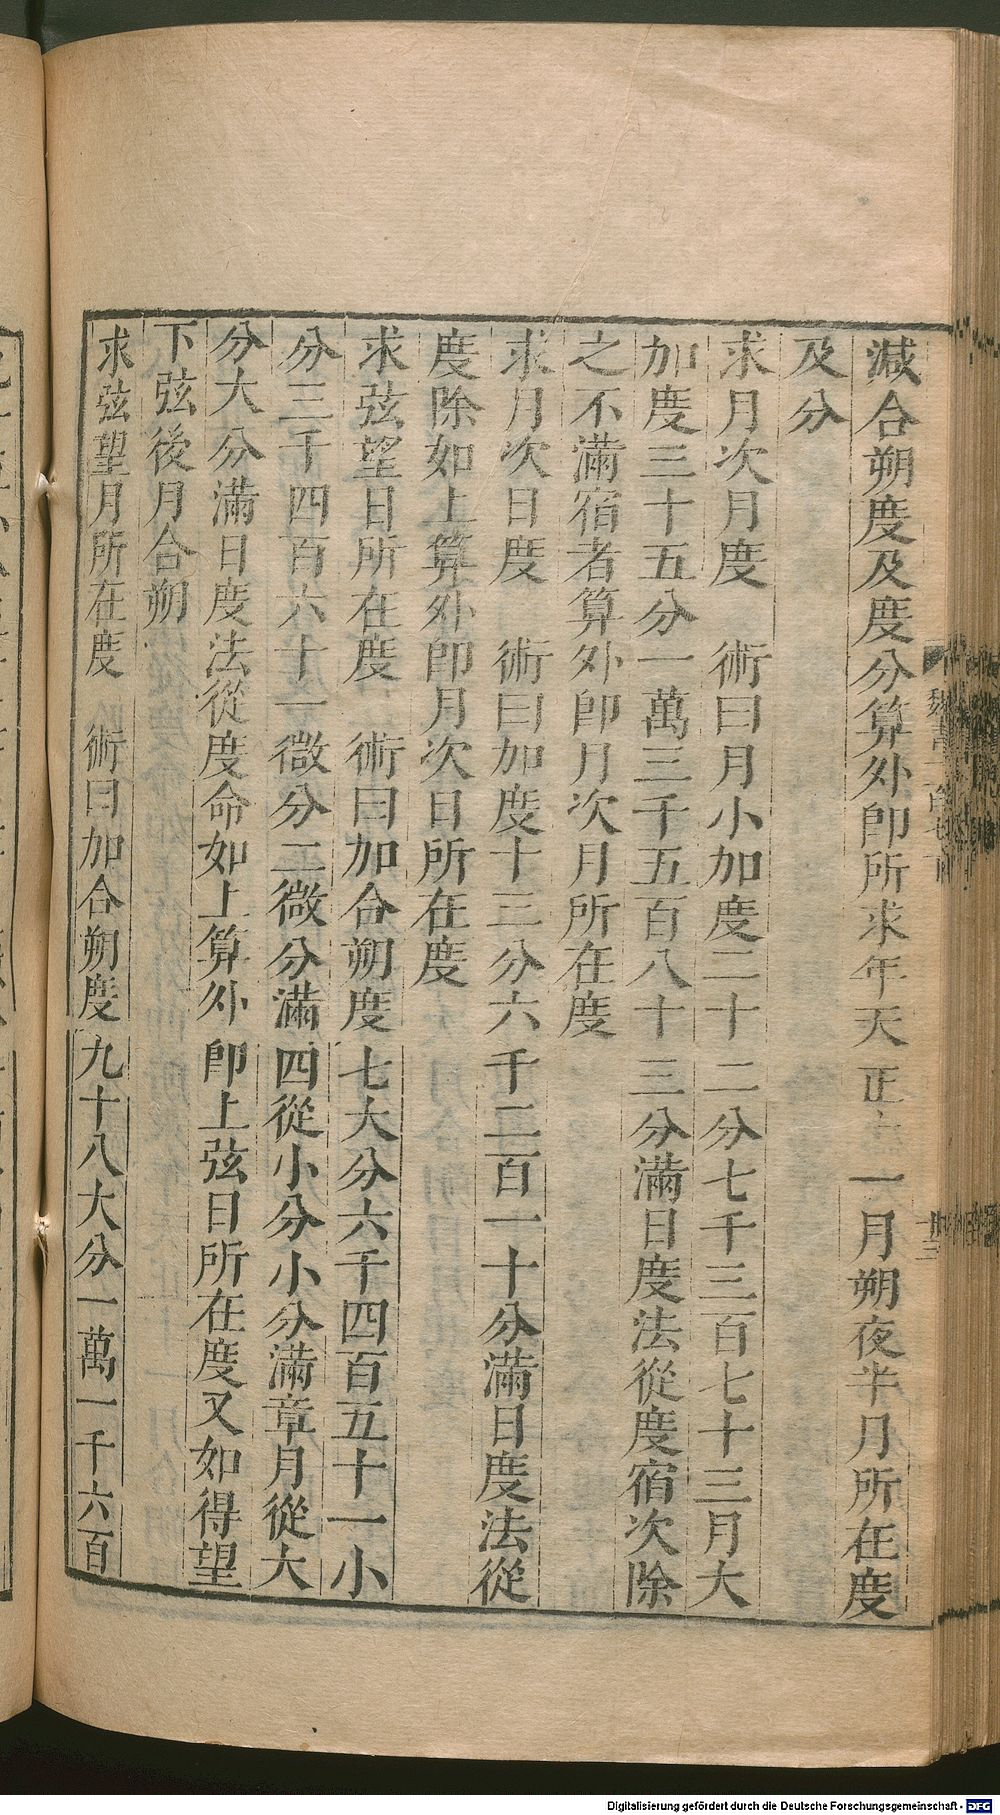 減合朔度及度分算外即所求年天正十一月朔夜半月所在度
及分
求月次月度　術曰月小加度二十二分七千三百七十三月大
加度三十五分一萬三千五百八十三分滿日度法從度宿次除
之不滿宿者算外即月次月所在度
求月次日度　術曰加度十三分六千二百一十分滿日度法從
度除如上算外即月次日所在度
求弦望日所在度　術曰加合朔度七大分六千四百五十一小
分三千四百六十一微分二微分滿四從小分小分滿章月從大
分大分滿日度法從度命如上算外即上弦日所在度又如得望
下弦後月合朔
求弦望月所在度　術曰加合朔度九十八大分一萬一千六百
Digitalisierung gefördert durch die Deutsche Forschungsgemeinschaft - DFG